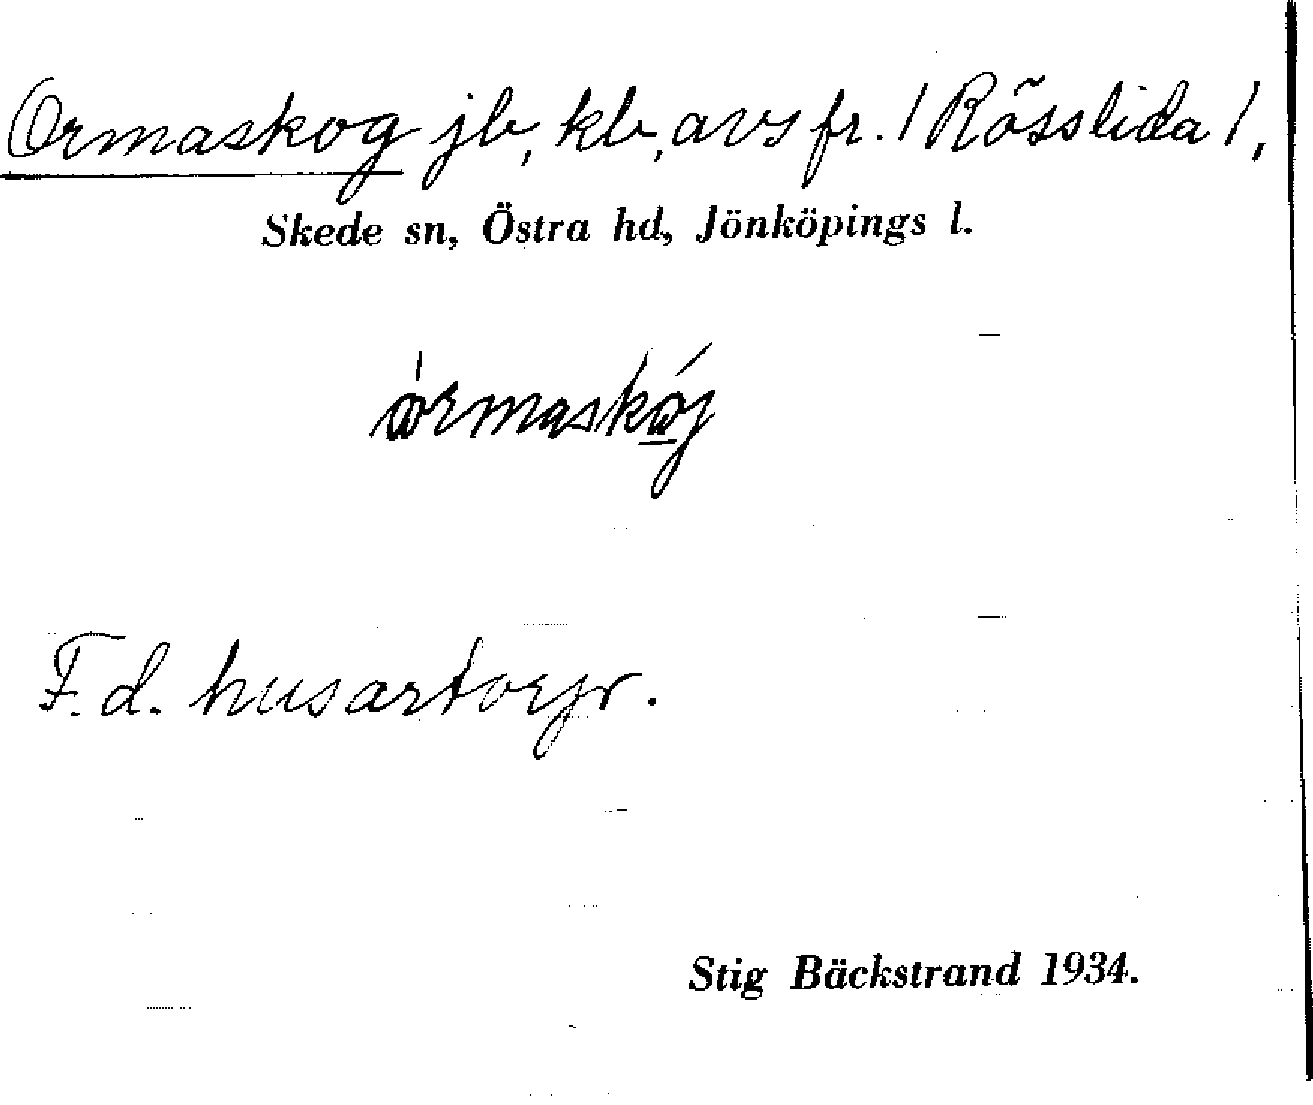 Ormaskog jb, kb, avs fr. / Rösslida /,
Skede sn, Östra hd, Jönköpings l.
F.d. husartorp.
Stig Bäckstrand 1934.